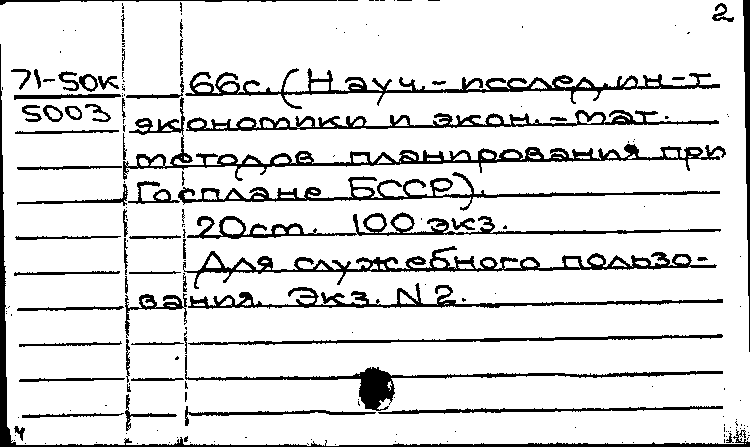 2
71-50К 66с. (Науч.-исслед. ин-т
5003 экономики и экон.-мат.
методов планирования при
Госплане БССР).
20см. 100 экз.
Для служебного пользо-
вания. Экз. N2.